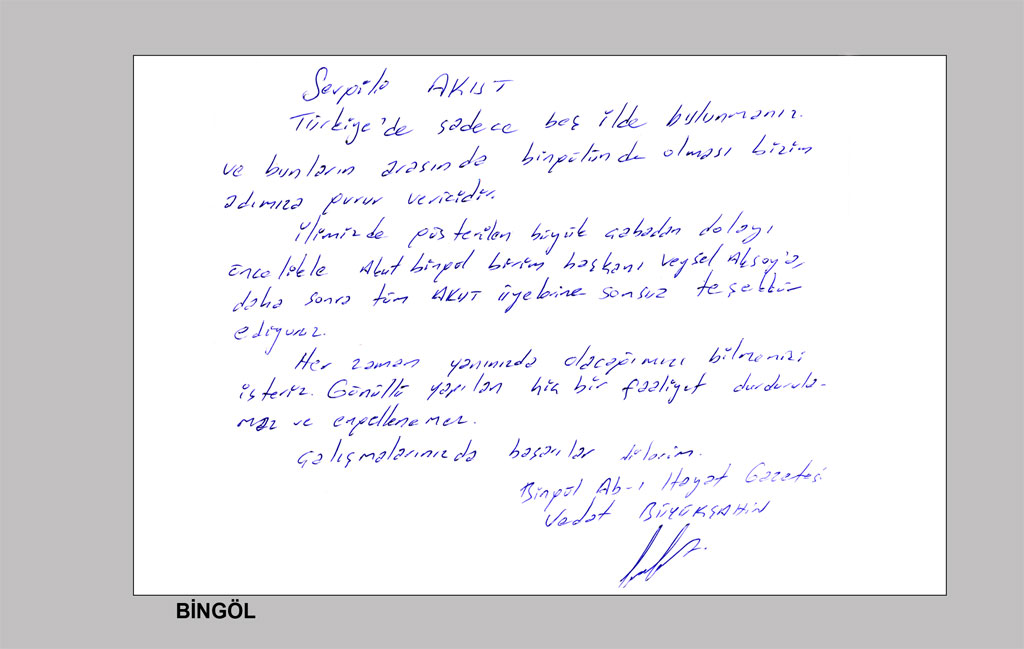 Sevgili AKUT
Türkiye'de sadece beş ilde bulunmanız.
ve bunların arasında bingölünde olması bizim
adımıza gurur vericidir.
ilimizde gösterilen büyük çabadan dolayı
öncelikle Akut bingöl birim başkanı Veysel Aksoy'a,
daha sonra tüm AKUT üyelerine sonsuz teşekkür
ediyoruz.
Her zaman yanınızda olacağımızı bilmenizi
isteriz. Gönüllü yapılan hiç bir faaliyet durdurula-
maz ve engellenemez.
çalışmalarınızda başarılar dilerim.
Bingöl Ab-ı Hayat Gazetesi
Vedat BÜYÜKŞAHİN
BİNGÖL